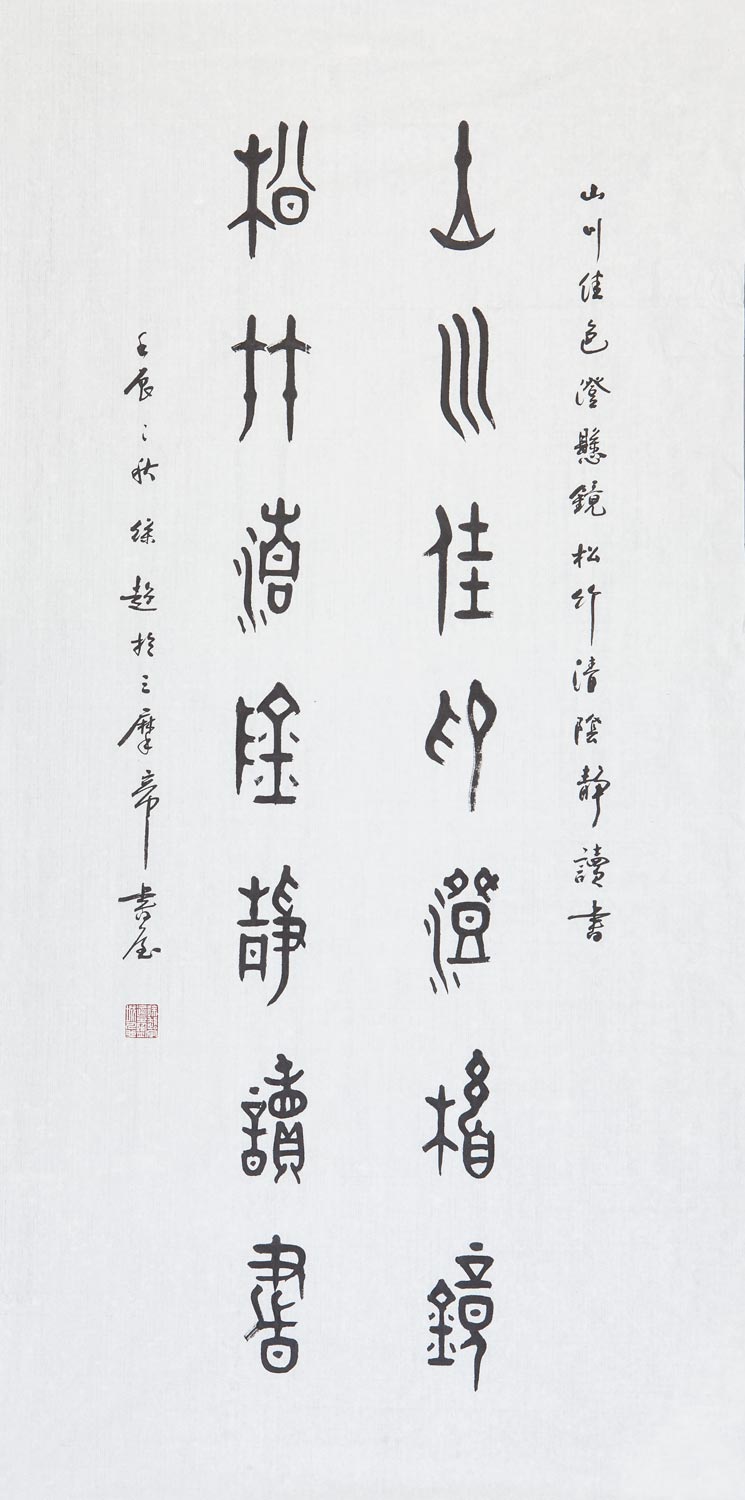 山川佳色澄懸鏡松竹清陰靜讀書
山川佳色澄懸鏡
松竹清陰靜讀書
壬辰之秋徐超於三摩帝書屋